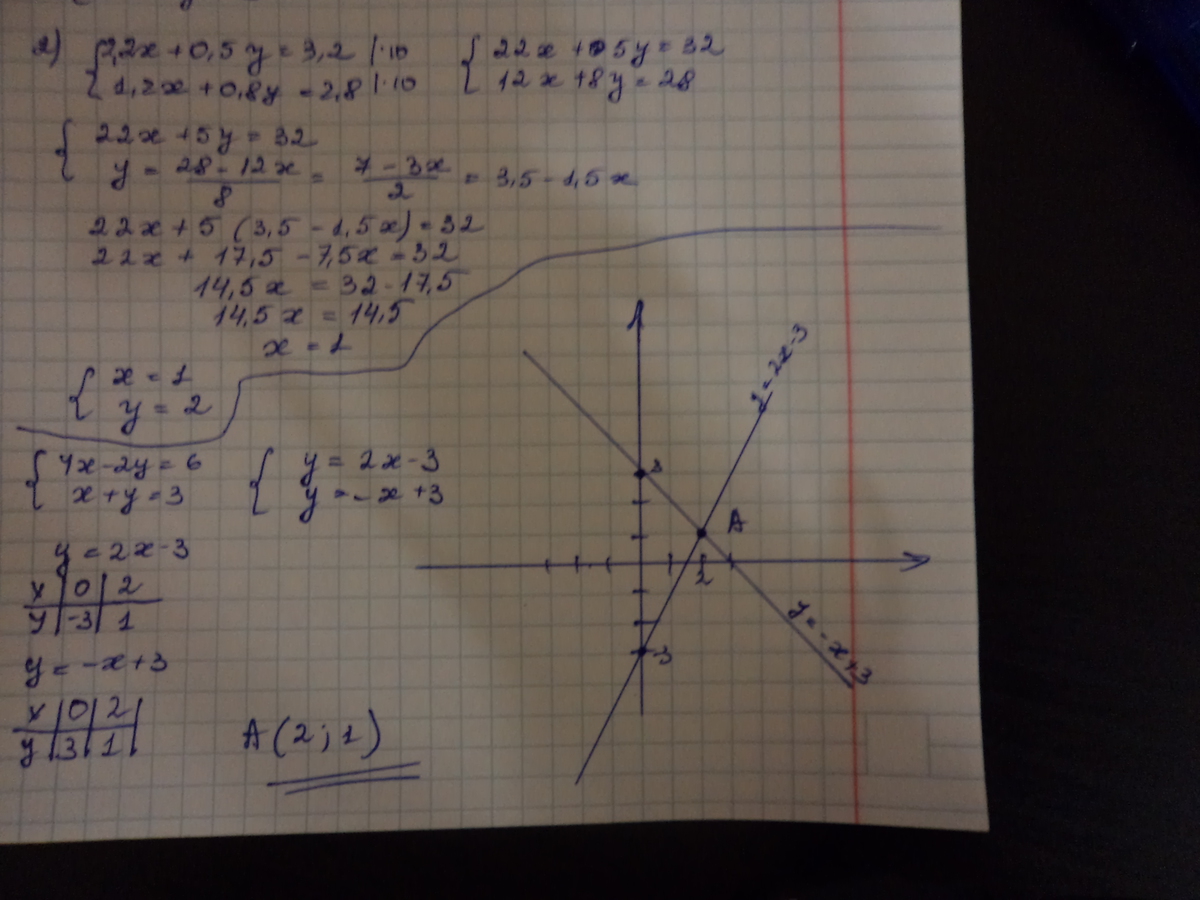 2) { 2,2x + 0,5y = 3,2 | ·10 { 22x + 5y = 32
1,2x + 0,8y = 2,8 | ·10 12x + 8y = 28
{ 22x + 5y = 32
y = (28 - 12x)/8 = (7 - 3x)/2 = 3,5 - 1,5x
22x + 5 (3,5 - 1,5x) = 32
22x + 17,5 - 7,5x = 32
14,5x = 32 - 17,5
14,5x = 14,5
x = 1
{ x = 1
y = 2
{ 4x - 2y = 6 { y = 2x - 3
x + y = 3 y = -x + 3
y = 2x - 3
x | 0 | 2
y | -3 | 1
y = -x + 3
x | 0 | 2 |
y | 3 | 1 |
A (2 ; 1)
y = 2x - 3
3
A
2
-3
y = -x + 3